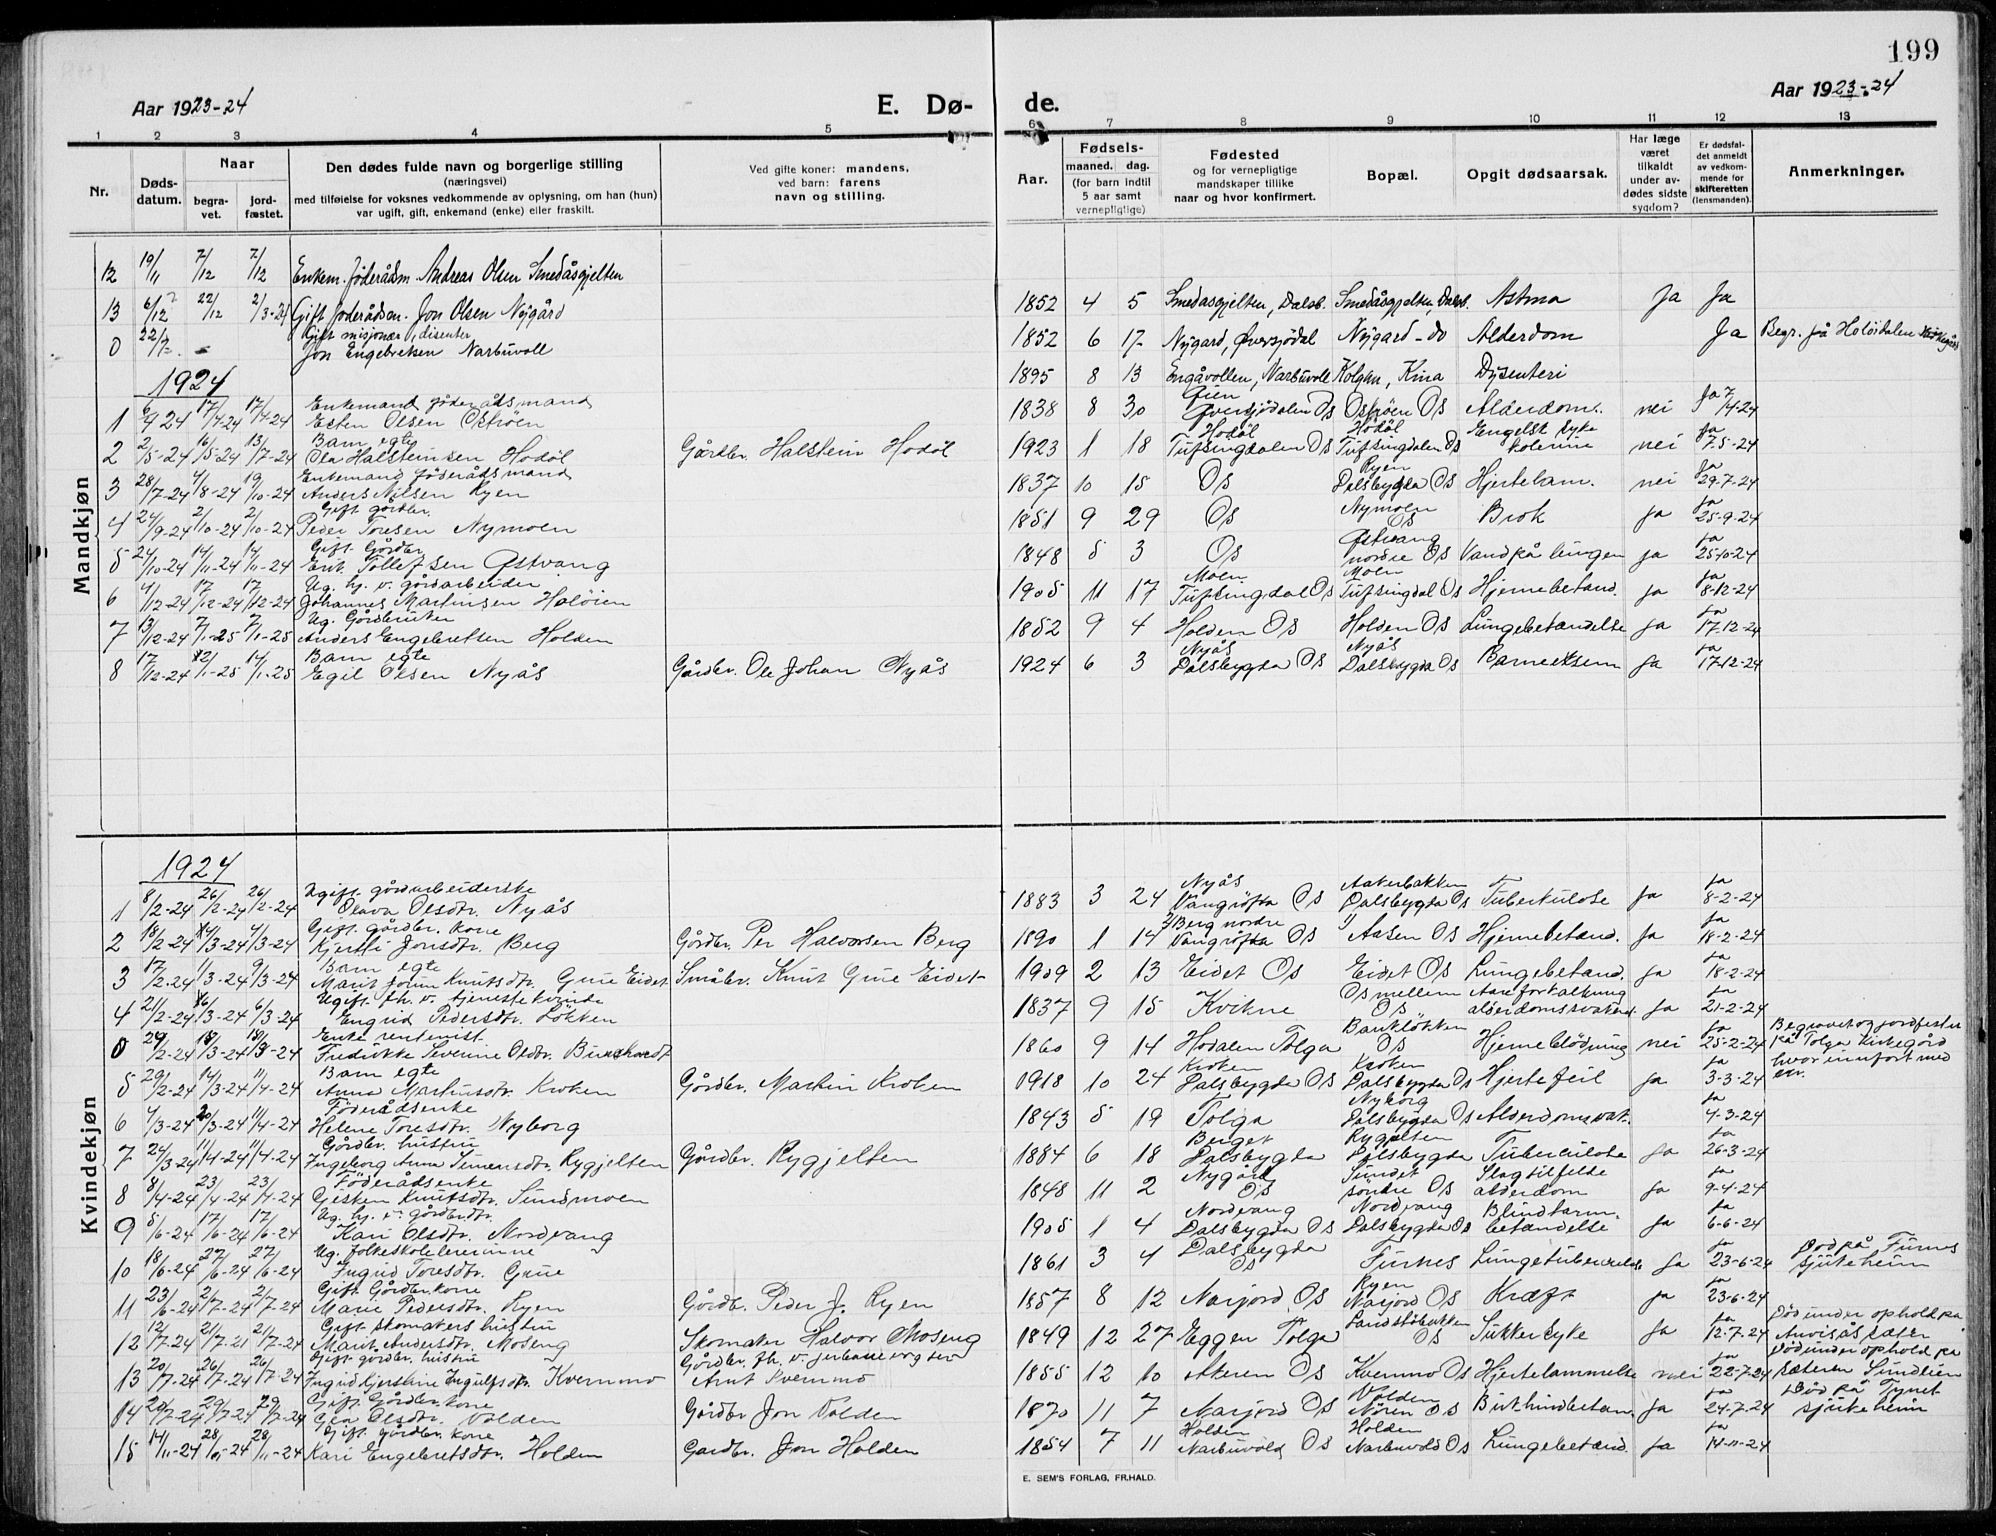 199
Aar 1923-24
E. Dø-
de.
Aar 1923-24
1 2 3 4 5 6 7 8 9 10 11 12 13
Nr.
Døds-
datum.
Naar
begra-
vet.
jord-
fæstet.
Den dødes fulde navn og borgerlige stilling
(næringsvei)
med tilføielse for voksnes vedkommende av oplysning, om han (hun)
var ugift, gift, enkemand (enke) eller fraskilt.
Ved gifte koner: mandens,
ved barn: farens
navn og stilling.
Aar.
Fødsels-
maaned. dag.
(for barn indtil
5 aar samt
vernepligtige)
Fødested
og for vernepligtige
mandskaper tillike
naar og hvor konfirmert.
Bopæl.
Opgit dødsaarsak.
Har læge
været
tilkaldt
under av-
dødes sidste
sygdom?
Er dødsfal-
det anmeldt
av vedkom-
mende for
skifteretten
(lensmanden).
Anmerkninger.
Mandkjøn
12 19/11 7/12 7/12 Enkem. føderådsm. Andreas Olsen Smedåsgjelten
1852 4 5 Smedasgjelten, Dalsb. Smedåsgjelten, Dalsb. Astma Ja Ja
13 6/12 22/12 2/3-24 Gift føderådsm. Jon Olsen Nygård
1852 6 17 Nygard, Øversjødal Nygard - do Alderdom Ja Begr. på Holøidalen kirkegård
0 22/7 - Gift misjonær, disenter
Jon Engebretsen Narbuvoll
1895 8 13 Engåvollen, Narbuvoll Kina Dysenteri
1924
1 6/4 24 17/4-24 17/4-24 Enkemand føderådsmand
Esten Olsen Østrøen
1838 8 30 Øversjødalen Os Østrøen Os Alderdom. nei Ja 7/4-24
2 2/5-24 16/5-24 13/7-24 Barn egte
Ola Halsteinsen Hodøl Gårdbr. Halstein Hodøl
1923 1 18 Hodøl Tufsingdalen Os Hodøl Tufsingdalen Os Engelsk syke nei ja 7.5-24
3 28/7-24 4/8-24 19/10-24 Enkemand føderådsmand
Anders Nilsen Ryen
1837 10 15 Os Ryen Dalsbygda Os Hjertelam. nei Ja 29-7-24
4 24/9-24 2/10-24 2/10-24 Gift gårdbr.
Peder Toresen Nymoen
1851 9 29 Os Nymoen Os Brok ja ja 25-9-24
5 24/10-24 14/11-24 14/11-24 Gift. Gårdbr
Erik Tollefsen Østvang
1848 5 3 Os Østvang nordre Os Vand på lungen ja ja 25-10-24
6 4/12-24 17/12-24 17/12-24 Ug. hj. v. gårdarbeider
Johannes Martinsen Holøien
1905 11 17 Moen Tufsingdal Os Moen Tufsingdal Os Hjernebetænd. ja ja 8-12-24
7 13/12-24 7/1-25 7/1-25 Ug. Gårdbruker
Anders Engebretsen Holden
1852 9 4 Holden Os Holden Os Lungebetændelse ja ja 17-12-24
8 17/12-24 12/1-25 14/1-25 Barn egte
Egil Olsen Nyås Gårdbr. Ole Johan Nyås
1924 6 3 Nyås Dalsbygda Os Nyås Dalsbygda Os Barneeksem Ja ja 17-12-24
Kvindekjøn
1924
1 8/2-24 26/2-24 26/2-24 Ugift gårdarbeiderske
Olava Olsdtr. Nyås
1883 3 24 Nyås Vangrøfta Os Aakerbakken Dalsbygda Os Tuberkulose ja ja 8-2-24
2 18/2-24 4/3-24 4/3-24 Gift. gårdbr. kone
Kjersti Jonsdtr. Berg Gårdbr. Per Halvorsen Berg
1890 1 14 Berg nordre Vangrøfta Os Aasen Os Hjernebetænd. ja ja 18-2-24
3 17/2-24 1/3-24 9/3-24 Barn egte
Marit Jorun Knutsdtr. Grue Eidet Småbr. Knut Grue Eidet
1909 2 13 Eidet Os Eidet Os Lungebetænd. ja ja 18-2-24
4 21/2-24 6/3-24 6/3-24 Ugift fh. v. tjenestekvinde
Engrid Pedersdtr. Løkken
1837 9 15 Kvikne Os mellem Os Aareforkalkning ja ja 21-2-24
0 24/2-24 13/3-24 13/3-24 Enke rentenist
Fredrikke Severine Olsdtr. Burchardt
1860 9 14 Hodalen Tolga Bankløkken Os Hjerneblødning nei ja 25-2-24 Begravet og jordfestet
på Tolga kirkegård
hvor innført med
nr.
5 29/2-24 14/3-24 11/4-24 Barn egte
Anna Martinsdtr. Kroken Gårdbr. Martin Kroken
1918 10 24 Kroken Dalsbygda Os Kroken Dalsbygda Os Hjertefeil ja ja 3-3-24
6 4/3-24 20/3-24 11/4-24 Føderådsenke
Helene Toresdtr. Nyborg
1843 5 19 Tolga Nyborg Dalsbygda Os Alderdomsvak. ja 4-3-24
7 24/3-24 11/4-24 11/4-24 Gårdbr. hustru
Ingeborg Anna Simensdtr. Rygjelten Gårdbr. Rygjelten
1884 6 18 Berget Dalsbygda Rygjelten Dalsbygda Tuberkulose ja ja 26-3-24
8 8/4-24 23/4-24 23/4-24 Føderådsenke
Gjesken Knutsdtr. Sundmoen
1848 11 2 Nygård Os Sundet søndre Os Slagtilfelde alderdom ja ja 9-4-24
9 5/6-24 17/6-24 17/6-24 Ug. hj. v. gårdbr.dtr.
Kari Olsdtr. Nordvang
1905 1 4 Nordvang Dalsbygda Os Nordvang Dalsbygda Os Blindtarm-betændelse ja ja 6-6-24
10 18/6-24 27/6-24 27/6-24 Ug. folkeskolelererinne
Ingrid Toresdtr. Grue
1861 3 4 Dalsbygda Os Furnes Lungetuberkulose ja ja 23-6-24 Død på Furnes
sjukeheim
11 23/6-24 2/7-24 2/7-24 Gift Gårdbr. kone
Marie Pedersdtr. Ryen Gårdb. Peder J. Ryen
1857 8 12 Narjord Os Ryen Narjord Os Kræft ja ja 23-6-24
12 12/7-24 21/7-21 21/7-24 Gift skomakers hustru
Marit Andersdtr. Moseng Skomaker Halvor Moseng
1849 12 27 Eggen Tolga Landstøbakken Os Sukkersyke ja ja 12-7-24 Død under ophold på
13 20/7-24 26/7-24 26/7-24 Gift gårdbr. hustru
Ingrid Kjerstine Ingulfsdtr. Kvernmo Gårdbr. fh. v.
Arnt Kvernmo
1855 12 10 Os Kvernmo Os Hjertelammelse nei ja 22-7-24 Død under ophold på
sæteren Sundlien
14 20/7-24 29/7-24 29/7-24 Gift Gårdbr. kone
Gea Olsdtr. Volden Gårdbr Jon Volden
1870 11 7 Narjord Os Volden Nøren Os Bukhindbetæn. ja ja 24-7-24 Død på Tynset
sjukeheim
15 14/11-24 28/11-24 28/11-24 Gift. Gårdbr. kone
Kari Engebretsdtr. Holden Gardbr. Jon Holden
1854 7 11 Holden Narbuvold Os Holden Narbuvold Os Lungebetænd. ja ja 14-11-24
E. SEM'S FORLAG, FR.HALD.